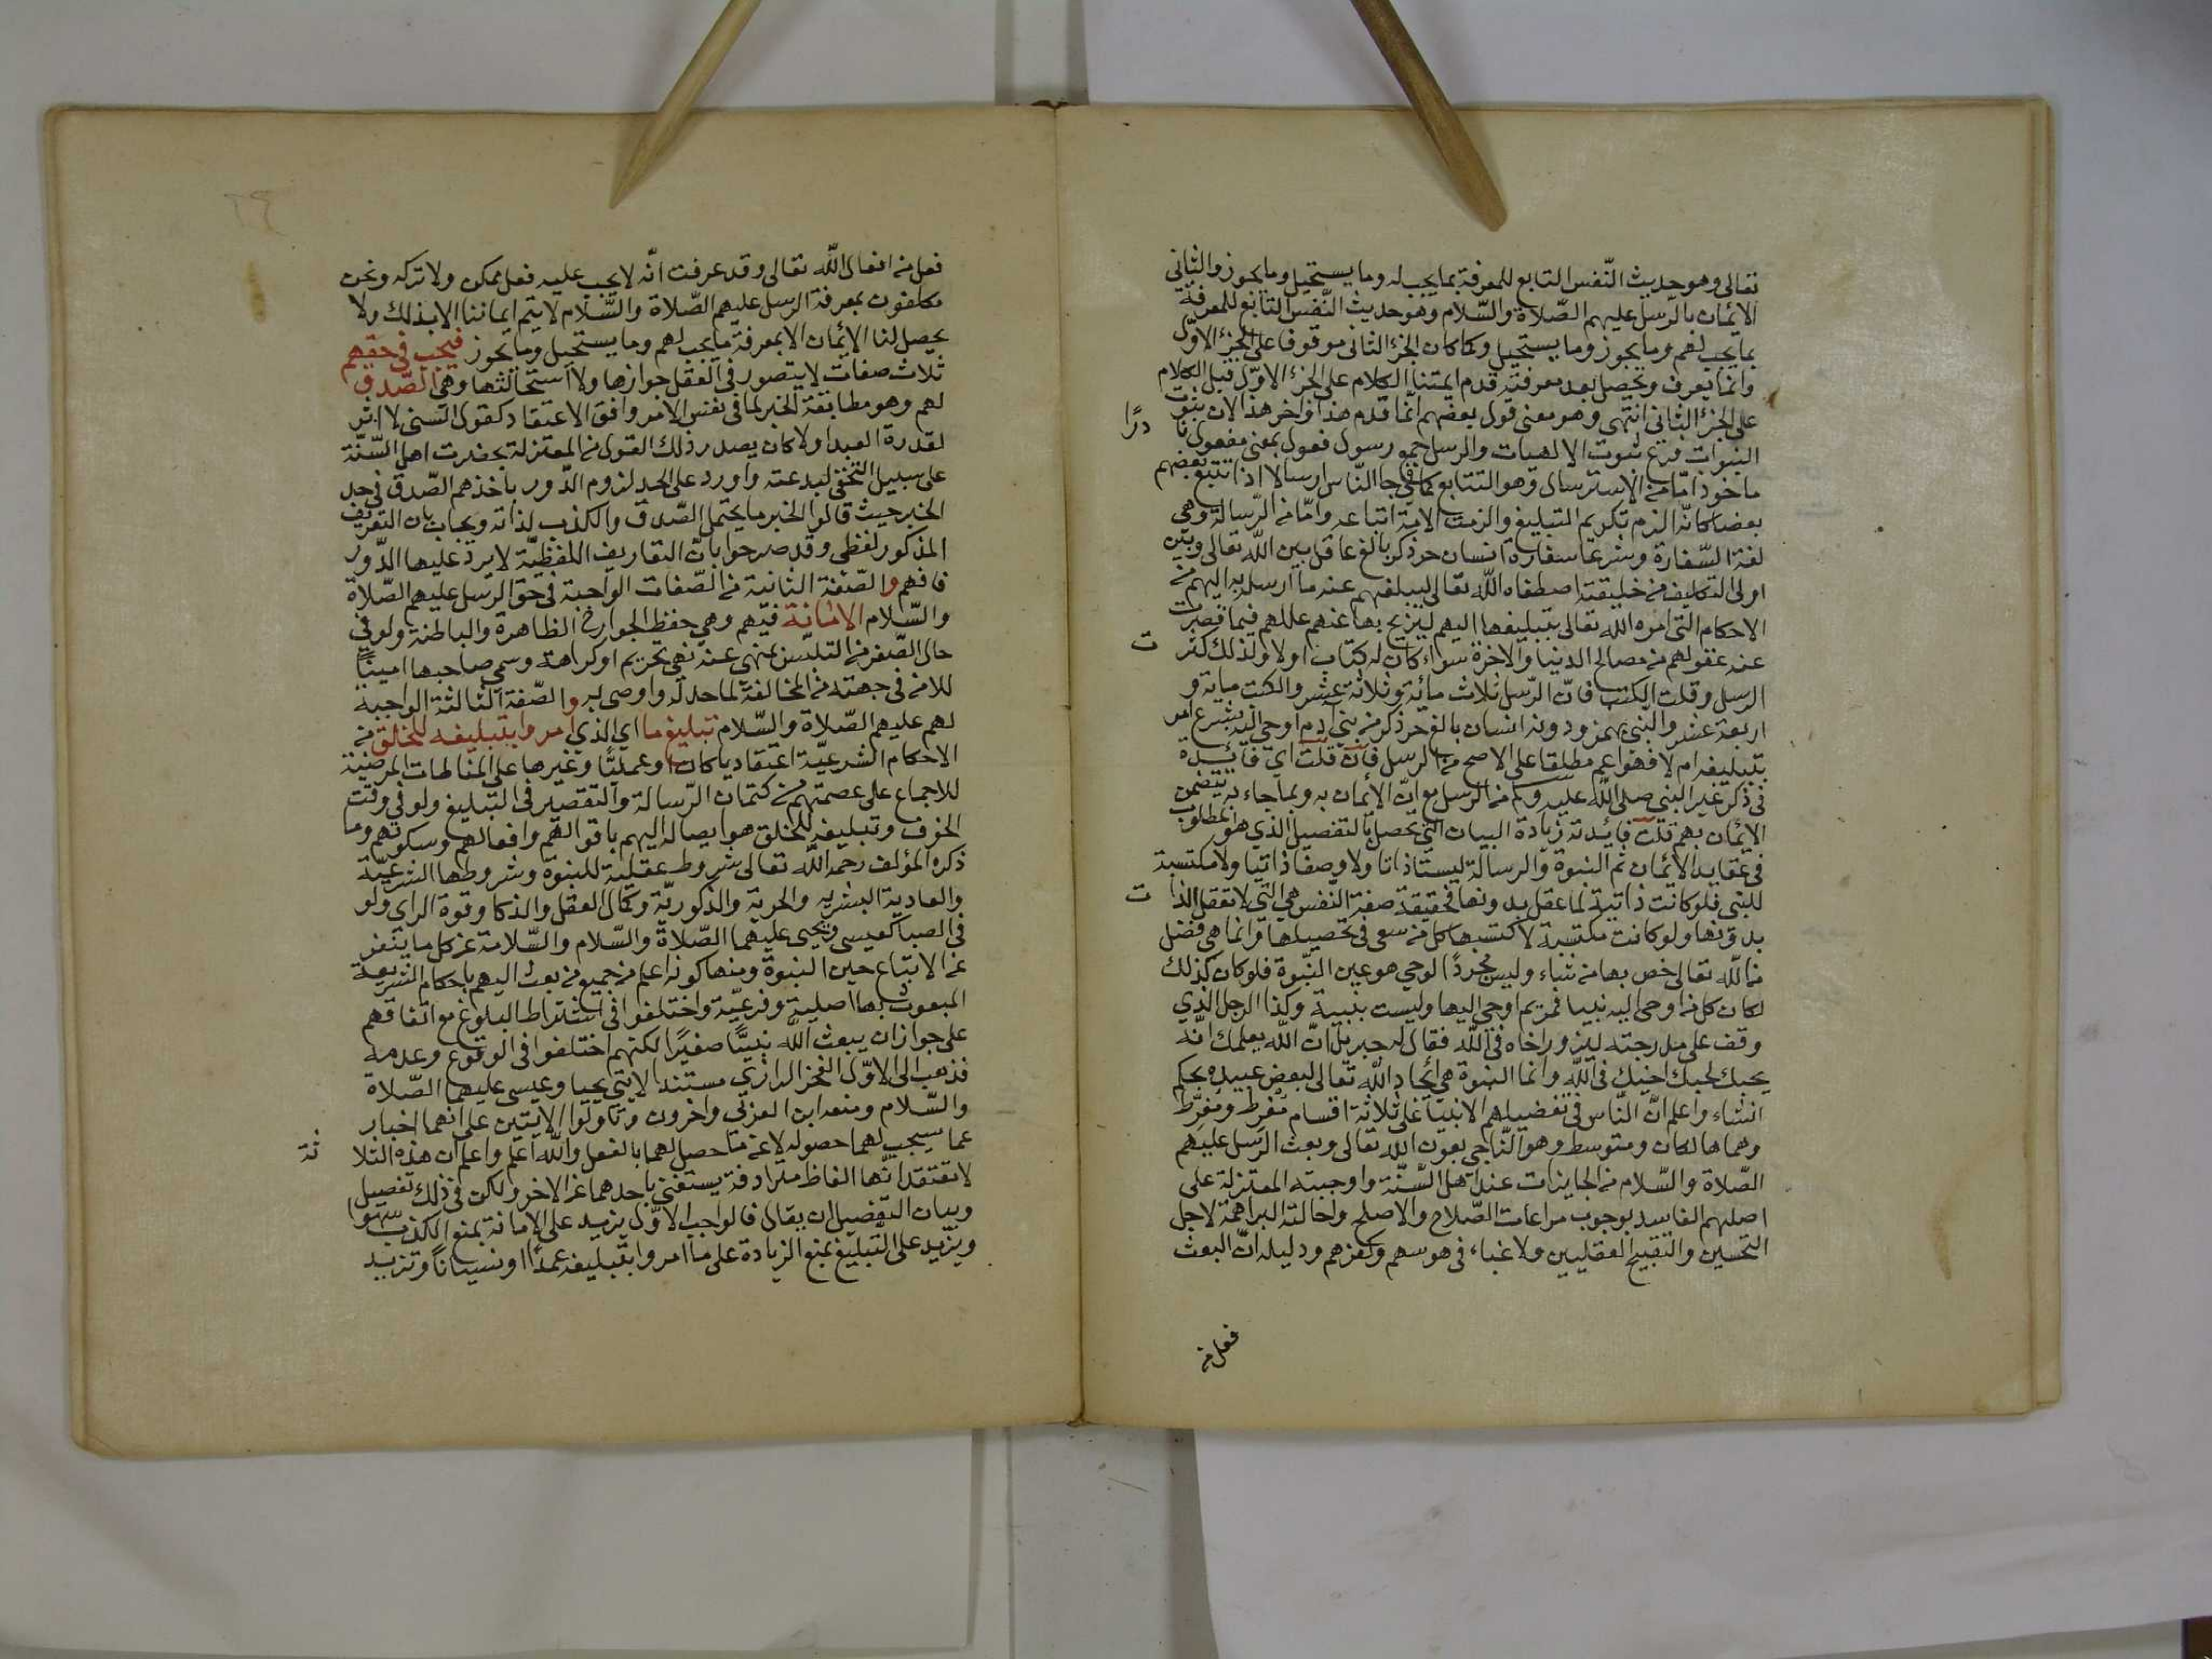 تعالى وهو حديث النّفس التابع للمعرفة بما يجب له وما يستحيل وما يجوز والثاني
الإئمان بالرّسل عليهم الصّلاة والسّلام وهو حديث النّفس التابع للمعرفة
بما يجب لهم وما يجوز وما يستحيل وكما كان الجزء الثاني موقوفا على الجزء الاوّل
وانما يعرف ويحصل بعد معرفته قدم ايمتنا الكلام على الجزء الاوّل قبل الكلام
على الجزء الثاني انتهى وهو معنى قول بعضهم انّما قدم هذا واخر هذا لان ثبوت
النبوات فرع ثبوت الالهيات والرسل جمع رسول فعول بمعنى مفعول
ماخوذ امّا من الاسترسال وهو التتابع كما في جا النّاس ارسالا اذا تتبع بعضهم
بعضا كانّه الزم تكريم التبليغ والزمت الامة اتباعه وامّا من الرّسالة وهي
لغة السّفارة وشرعا سفارة انسان حر ذكر بالغ عاقل بين اللّه تعالى وبين
اولى التكليف من خليقته اصطفاه اللّه تعالى ليبلغهم عنه ما ارسل به اليهم من
الاحكام التى امره الله تعالى بتبليغها اليهم ليزيح بها عنهم عللهم فيما قصرت
عنه عقولهم من مصالح الدنيا والاخرة سواء كان له كتاب اولا ولذلك كثرت
الرسل وقلت الكتب فانّ الرّسل ثلاث مائة وثلاثة عشر والكتب ماية و
اربعة عشر والنبي بهمز ودونه انسان بالغ حر ذكر من بني ادم اوحي اليه بشرع امر
بتبليغه ام لا فهو اعم مطلقا على الاصح من الرسل فان قلت اي فائدة
في ذكر غير النبي صلى اللّه عليه وسلم من الرّسل مع انّ الأئمان به وبما جاء به يتضمن
الايمان بهم قلت فائدته زيادة البيان التي تحصل بالتفصيل الذي هو المطلوب
في عقايد الأئمان ثم النبوة والرسالة ليستا ذاتا ولا وصفا ذاتيا ولا مكتسبة
للنبي فلو كانت ذاتية لما عقل بدونها فحقيقة صفة النّفس هي التي لا تعقل الذات
بدونها ولو كانت مكتسبة لاكتسبها كل من سعى في تحصيلها وانما هي فضل
من اللّه تعالى خص بها من شاء وليس مجردًا لوحي هو عين النّبوة فلو كان كذلك
لكان كل من اوحى اليه نبيا فمريم اوحي اليها وليست بنبية وكذا الرجل الذي
وقف على مدرجته ليزور اخاه في اللّه فقال له جبريل انّ اللّه يعلمك انّه
يحبك لحبك اخيك في اللّه وانما النبوة هي ايحاء اللّه تعالى لبعض عبيده بحكم
انشاء واعلم انّ النّاس في تفضيلهم الانبيا على ثلاثة اقسام مُفرِط ومُفرِّط
وهما هالكان ومتوسط وهو النّاجي بعون اللّه تعالى وبعث الرّسل عليهم
الصّلاة والسّلام من الجايزات عند اهل السّنّة واوجبته المعتزلة على
اصلهم الفاسد بوجوب مراعات الصّلاح والاصلح واحالته البراهمة لاجل
التحسين والتقبيح العقليين ولا غباء في هوسهم وكفرهم ودليله انّ البعث
فعل من
فعل من افعال اللّه تعالى وقد عرفت انّه لا يجب عليه فعل ممكن ولا تركه ونحن
مكلفون بمعرفة الرسل عليهم الصّلاة والسّلام لا يتم ايماننا الا بذلك ولا
يحصل لنا الايمان الا بمعرفة ما يجب لهم وما يستحيل وما يجوز فيجب في حقهم
ثلاث صفات لا يتصور في العقل جوازها ولا استحالتها وهي الصّدق
لهم وهو مطابقة الخبر لما في نفس الامر وافق الاعتقاد كقول السني لا اثر
لقدرة العبد او لا كان يصدر ذلك القول من المعتزلة بحضرت اهل السّنّة
على سبيل التخفي لبدعته واورد على الحد لزوم الدّور باخذهم الصّدق في حد
الخبر حيث قالوا الخبر ما يحتمل الصّدق والكذب لذاته ويجاب بان التعريف
المذكور لفظي وقد صرحوا بانّ التعاريف اللفظيّة لا يرد عليها الدّور
فافهم والصّفة الثانية من الصّفات الواجبة في حق الرسل عليهم الصّلاة
والسّلام الامانة فيهم وهي حفظ الجوارح الظاهرة والباطنة ولو في
حال الصّغر من التلبّس بمنهي عنه نهي تحريم او كراهة وسمي صاحبها امينًا
للامن في جهته من المخالفة لما حد له واوصى به والصّفة الثالثة الواجبة
لهم عليهم الصّلاة والسّلام تبليغ ما اي الذي امروا بتبليغه للخلق من
الاحكام الشرعيّة اعتقاديا كان او عمليًّا وغيرها على المرضية
للاجماع على عصمتهم من كتمان الرّسالة والتقصير في التبليغ ولو في وقت
الخوف وتبليغه للخلق هو ايصاله اليهم باقوالهم وافعالهم وسكوتهم وما
ذكره المؤلف رحمه اللّه تعالى شروط عقلية للنبوة وشروطها الشرعيّة
والعادية البشرية والحرية والذكوريّة وكمال العقل والذكا وقوة الراى ولو
في الصبا كعيسى ويحيى عليهما الصّلاة والسّلام والسّلامة عن كل ما ينفر
عن الاتباع حين النبوة ومنها كونه اعلم من جميع من بعث اليهم باحكام الشريعة
المبعوث بها اصلية وفرعيّة واختلفوا في اشتراط البلوغ مع اتفاقهم
على جواز ان يبعث اللّه نبيًّا صغيرًا لكنهم اختلفوا في الوقوع وعدمه
فذهب الى الاوّل الفخز الرازي مستندا لايتي يحيا وعيسى عليهما الصّلاة
والسّلام ومنعه ابن العربي واخرون وتاولوا الايتين على انهما اخبار
عما سيجب لهما حصوله لا عن ما حصل لهما بالفعل واللّه اعلم واعلم ان هذه الثلاثة
لا تعتقد انّها الفاظ مترادفة يستغني باحدهما عن الاخر ولكن في ذلك تفصيل
وبيان التفصيل ان يقال فالواجب الاوّل يزيد على الامانة بمنع الكذب سهوا
ويزيد على التّبليغ بمنع الزيادة على ما امروا بتبليغه عمدًا او نسيانًا وتزيد